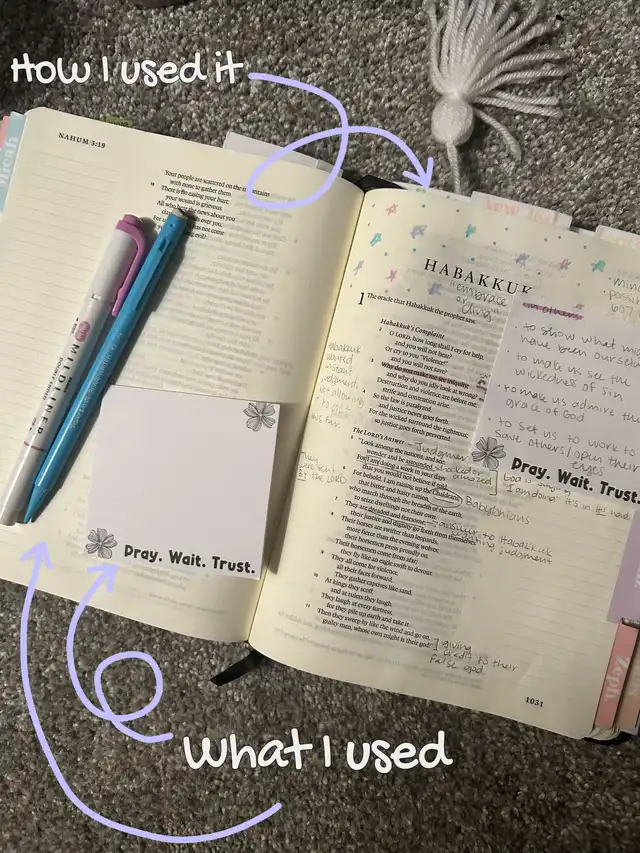 How I used it
NAHUM 3:19
Micah
Your people are scattered on the mountains
with none to gather them.
19 There is no easing your hurt;
your wound is grievous.
All who hear the news about you
over you.
not come
evil?
MILDLINER
Pray. Wait. Trust.
HABAKKUK
"embrace"
or
cling
1 The oracle that Habakkuk the prophet saw.
Habakkuk's Complaint
2 O LORD, how long shall I cry for help,
and you will not hear?
Or cry to you "Violence!"
and you will not save?
3 Why do you make me see iniquity,
and why do you idly look at wrong?
Destruction and violence are before me;
strife and contention arise.
4 So the law is paralyzed,
and justice never goes forth.
For the wicked surround the righteous;
so justice goes forth perverted.
Habakkuk
wanted
instant
judgment,
The LORD's Answer
5 "Look among the nations, and see;
wonder and be astounded.
For I am doing a work in your days
that you would not believe if told.
6 For behold, I am raising up the Chaldeans,
that bitter and hasty nation,
who march through the breadth of the earth,
to seize dwellings not their own.
7 They are dreaded and fearsome;
their justice and dignity go forth from themselves.
8 Their horses are swifter than leopards,
more fierce than the evening wolves;
their horsemen press proudly on.
Their horsemen come from afar;
they fly like an eagle swift to devour.
9 They all come for violence,
all their faces forward.
They gather captives like sand.
10 At kings they scoff,
and at rulers they laugh.
They laugh at every fortress,
for they pile up earth and take it.
11 Then they sweep by like the wind and go on,
guilty men, whose own might is their god!"
They
were sent
BY the LORD
Judgment
shocked
amazed
God is saying
"I am doing" it's in His hand
Babylonians
answer to Habakkuk
judgment
giving
credit to their
false god
in others
· to show what
have been ourselves
· to make us see the
wickedness of sin
· to make us admire the
grace of God
· to set us to work to
save others/open their
eyes
Pray. Wait. Trust.
Zeph
1031
What I used